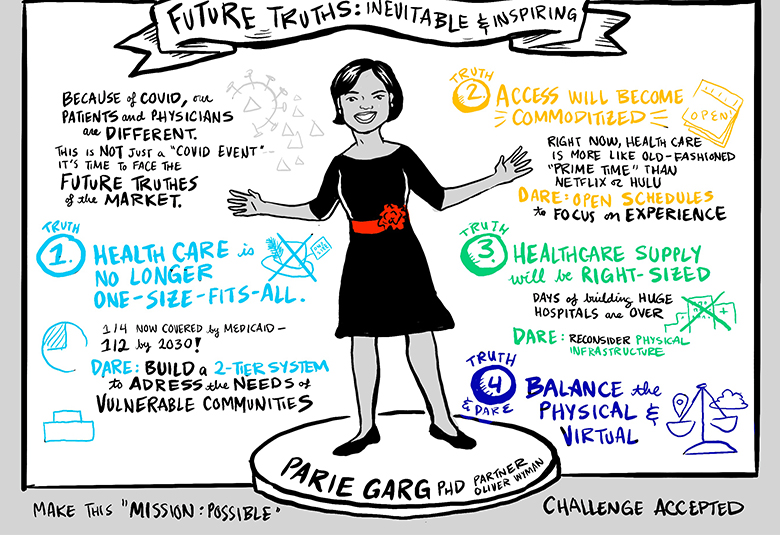 FUTURE TRUTHS: INEVITABLE & INSPIRING
BECAUSE of COVID, our
PATIENTS and PHYSICIANS
are DIFFERENT.
THIS is NOT JUST a "COVID EVENT"
IT'S TIME to FACE THE
FUTURE TRUTHES
of the MARKET.
TRUTH
1.
HEALTH CARE is
NO LONGER
ONE-SIZE-FITS-ALL.
1/4 NOW COVERED by MEDICAID-
1/2 by 2030!
DARE: BUILD a 2-TIER SYSTEM
to ADRESS the NEEDS of
VULNERABLE COMMUNITIES
TRUTH
2.
ACCESS WILL BECOME
COMMODITIZED
OPEN!
RIGHT NOW, HEALTH CARE
IS MORE LIKE OLD-FASHIONED
"PRIME TIME" THAN
NETFLIX or HULU
DARE: OPEN SCHEDULES
to FOCUS on EXPERIENCE
TRUTH
3.
HEALTHCARE SUPPLY
will be RIGHT-SIZED
DAYS of building HUGE
HOSPITALS are OVER
DARE: RECONSIDER PHYSICAL
INFRASTRUCTURE
TRUTH
4
& DARE
BALANCE the
PHYSICAL &
VIRTUAL
PARIE GARG PHD PARTNER
OLIVER WYMAN
MAKE THIS "MISSION: POSSIBLE"
CHALLENGE ACCEPTED